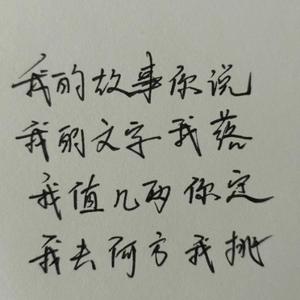 我的故事你说
我的文字我落
我值几两你定
我去何方我挑